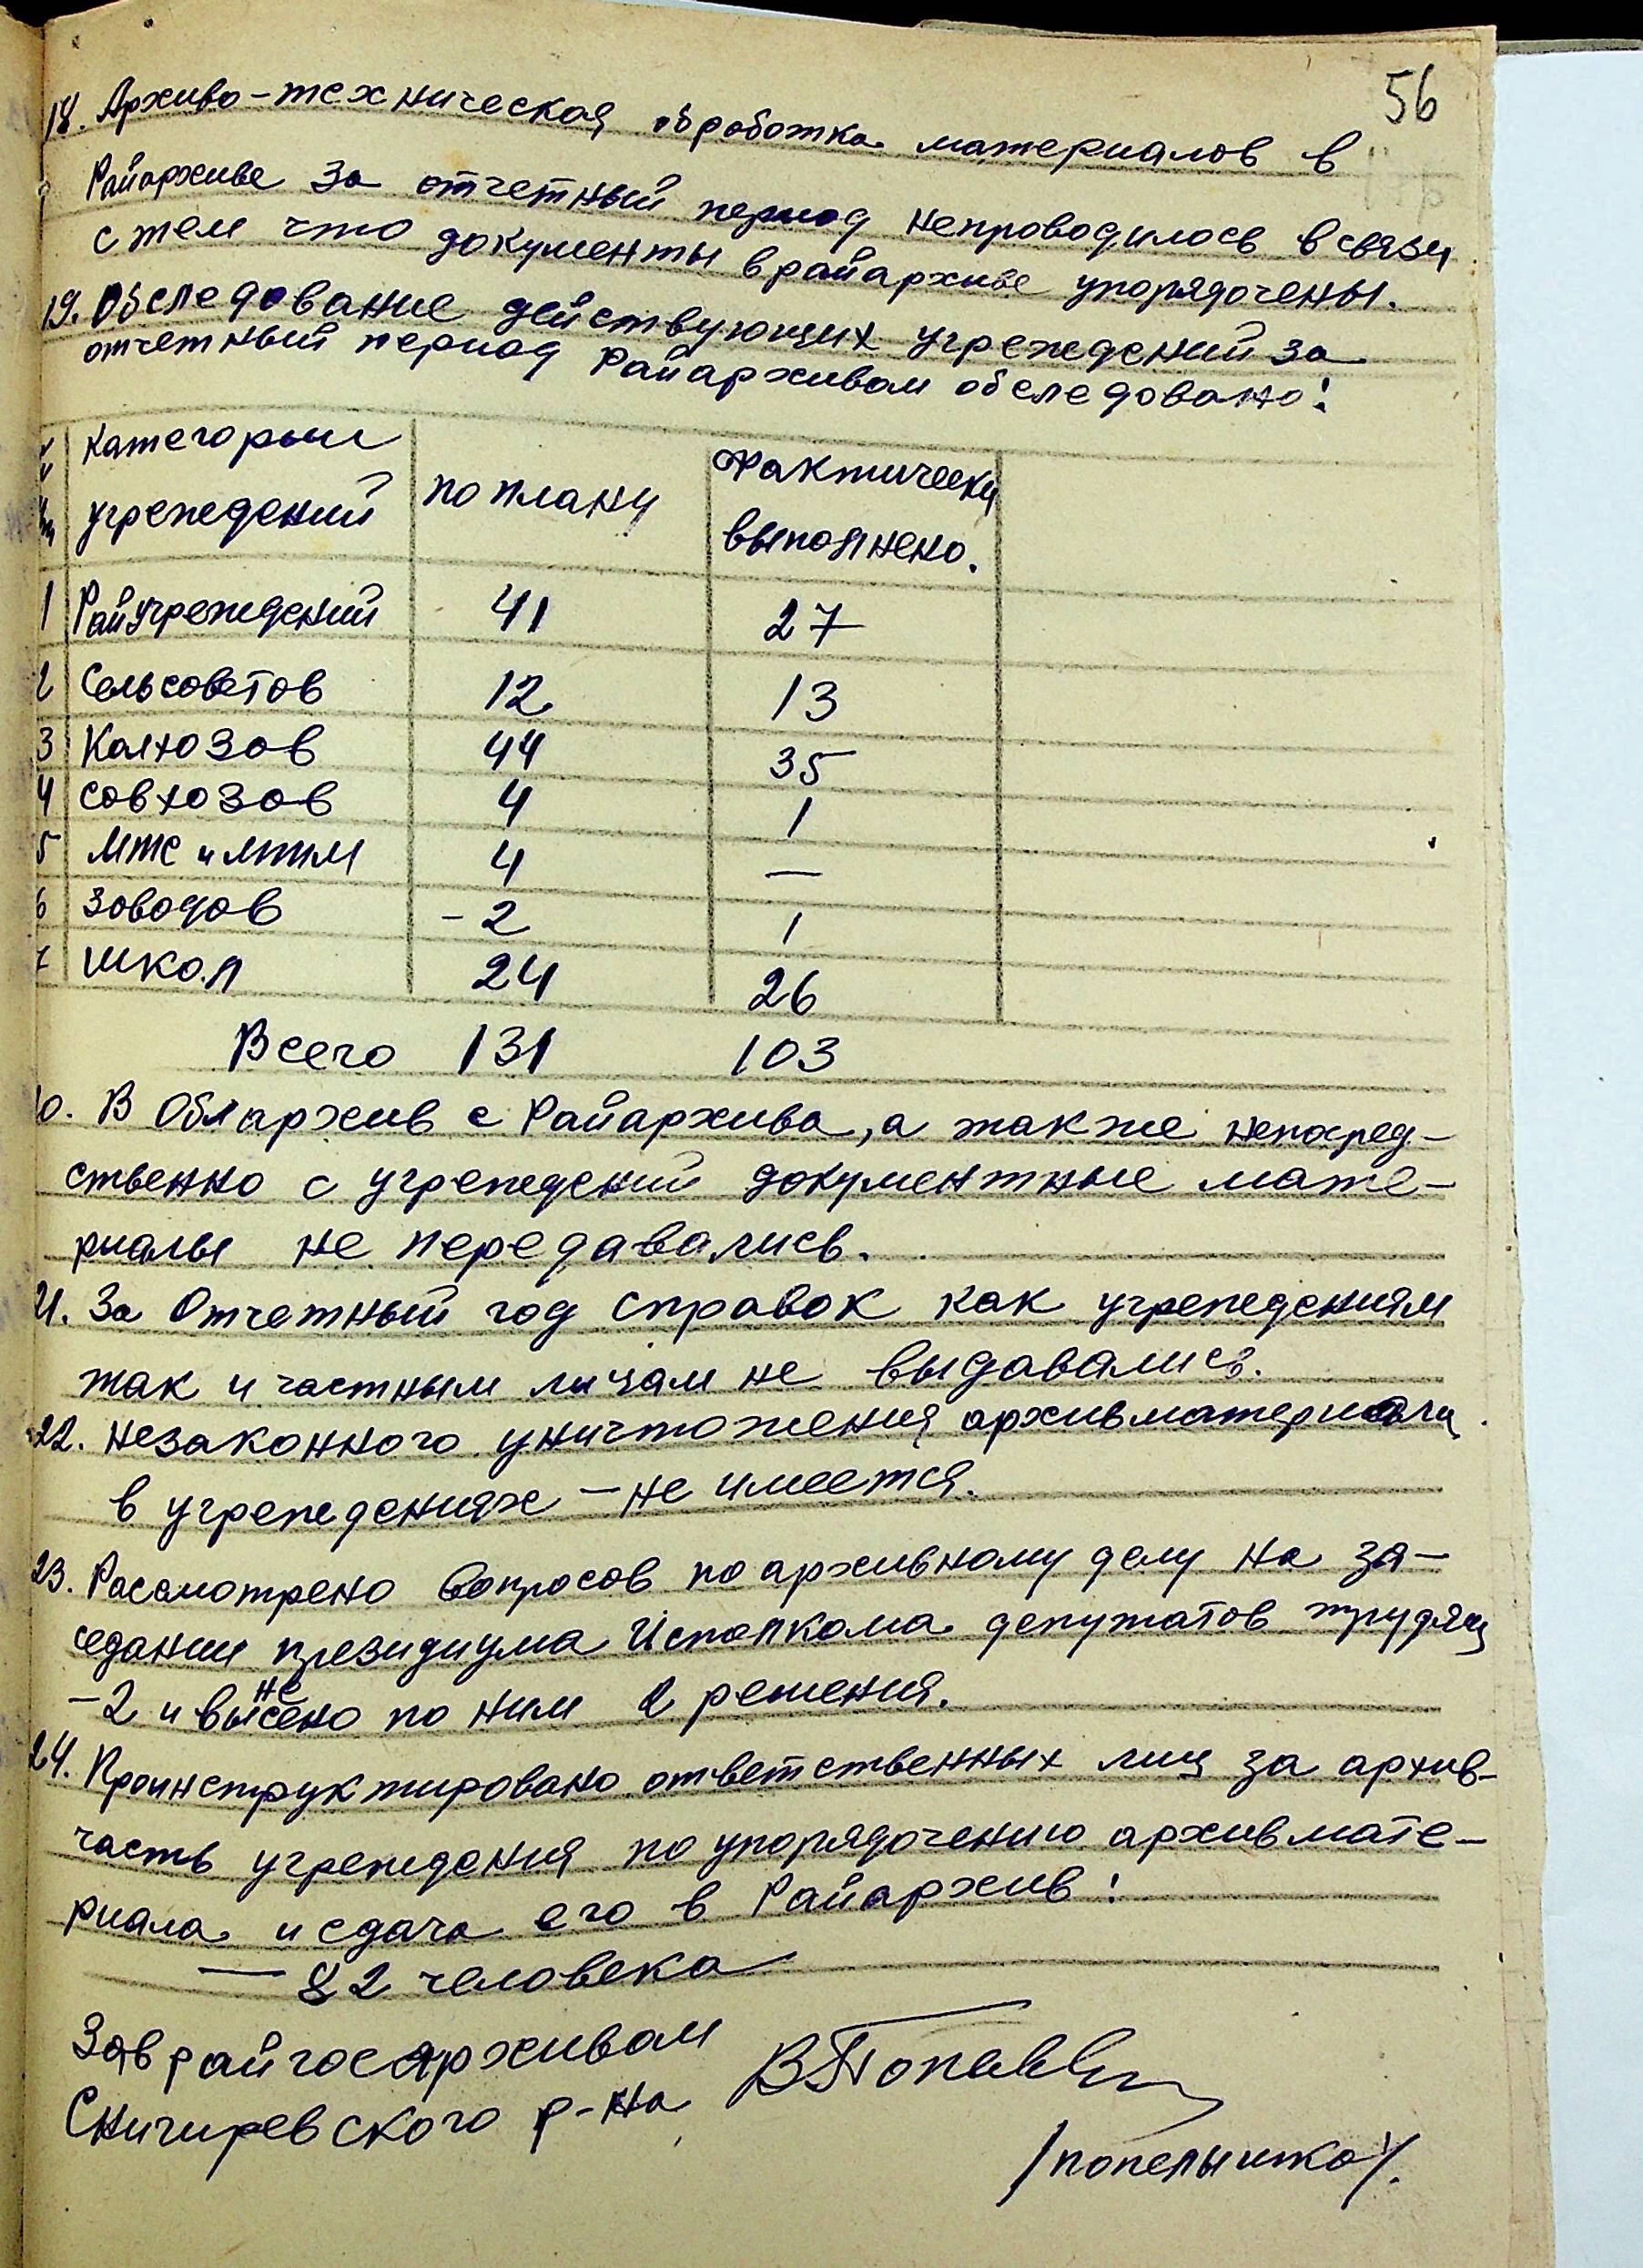 56
18. Архиво-техническая обработка материалов в
Райархиве за отчетный период непроводилось всвязи
с тем что документы врайархиве упорядочены.
19. Обследование действующих учреждений за
отчетный период Райархивом обследовано:
Категорыи учреждений | по плану | Фактически выполнено.
1 Райучреждений 41 27
2 Сельсоветов 12 13
3 Колхозов 44 35
4 Совхозов 4 1
5 Мтс и мтм 4 —
6 Заводов -2 1
7 школ 24 26
Всего 131 103
0. В Обларжив с Райархива, а также непосред-
ственно с учреждений документные мате-
риалы не передавались.
21. За Отчетный год справок как учреждениям
так и частным лицам не выдавались.
22. Незаконного уничтожения архивматериали
в учреждениях — не имеется.
23. Рассмотрено вопросов по архивному делу на за-
седании президиума Исполкома депутатов трудящ
-2 и вынесено по ним 2 решения.
24. Проинструктировано ответственных лиц за архив-
часть учреждения по упорядочению архивмате-
риала и сдача его в Райархив:
— 82 человека
Зав райгосархивом
Снигиревского р-на
/попельнико/.